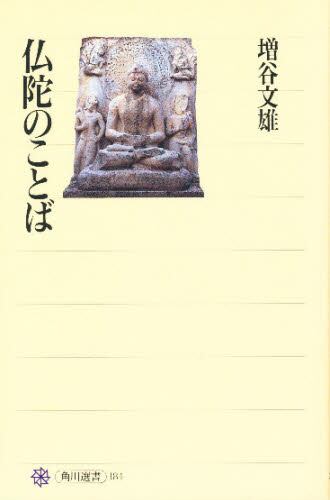 仏陀のことば
増谷文雄
角川選書 184